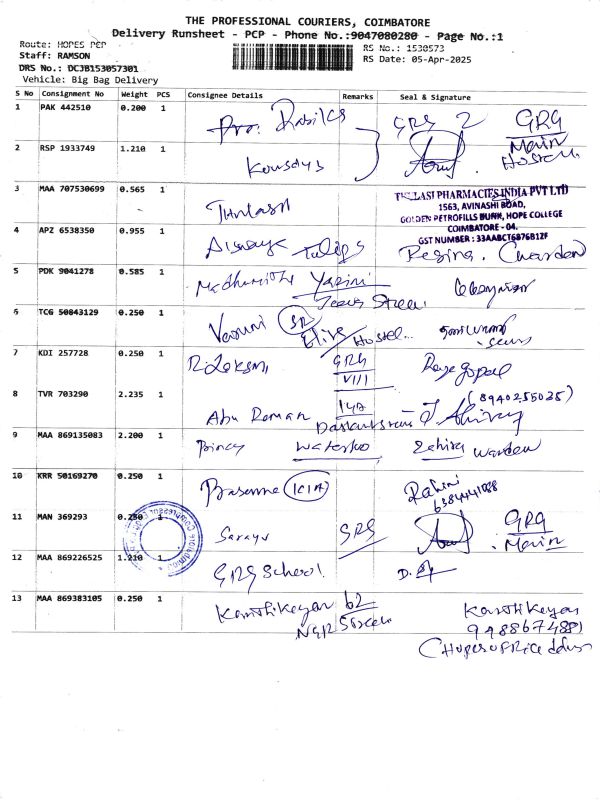 THE PROFESSIONAL COURIERS, COIMBATORE
Delivery Runsheet - PCP - Phone No.:9047080280 - Page No.:1
Route: HOPES PCP
Staff: RAMSON
DRS No.: DCJB153057301
Vehicle: Big Bag Delivery
RS No.: 1530573
RS Date: 05-Apr-2025
S No Consignment No Weight PCS Consignee Details Remarks Seal & Signature
1 PAK 442510 0.200 1 GRG 2 GRG
Main
Hostel
2 RSP 1933749 1.210 1
3 MAA 707530699 0.565 1 Thulasi
PHARMACIES INDIA PVT LTD
1563, AVINASHI ROAD,
GOLDEN PETROFILLS BUNK, HOPE COLLEGE
COIMBATORE - 04.
GST NUMBER : 33AABCT6876B12F
4 APZ 6538350 0.955 1 Tulips Regina. Warden
5 PDK 9041278 0.585 1 Yazini
6 TCG 50843129 0.250 1 SR Elite Hostel
7 KDI 257728 0.250 1 GRG Rajagopal
VIII
8 TVR 703290 2.235 1 Abu Raman (8940255025)
9 MAA 869135083 2.200 1 Zehira warden
10 KRR 50169270 0.250 1 Rahini
11 MAN 369293 0.250 1 Sarayu GRG GRG
Main
12 MAA 869226525 1.210 1 GRG School
13 MAA 869383105 0.250 1 Karthikeyan 62 Karthikeyan
NGR Street